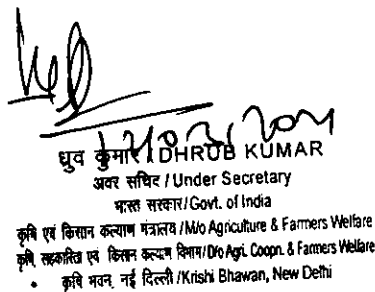 ध्रुव कुमार / DHRUB KUMAR
अवर सचिव / Under Secretary
भारत सरकार / Govt. of India
कृषि एवं किसान कल्याण मंत्रालय / M/o Agriculture & Farmers Welfare
कृषि, सहकारिता एवं किसान कल्याण विभाग / D/o Agri. Coopn. & Farmers Welfare
कृषि भवन, नई दिल्ली / Krishi Bhawan, New Delhi